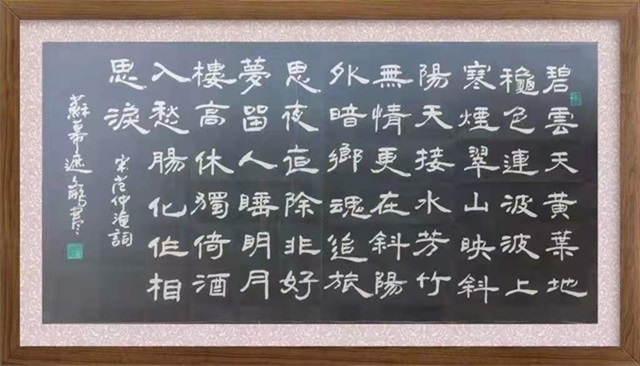 碧雲天黄葉地
穐色連波波上
寒煙翠山映斜
陽天接水芳艸
無情更在斜陽
外暗鄉魂追旅
思夜夜除非好
夢留人睡明月
樓高休獨倚酒
入愁腸化作相
思淚
宋范仲淹詞
蘇幕遮